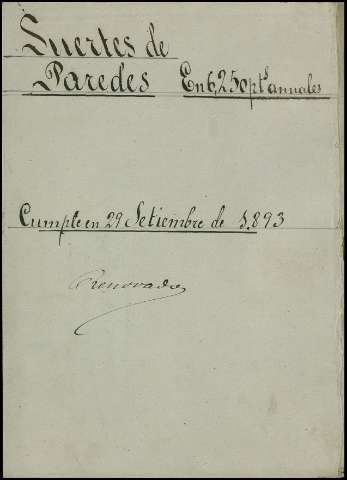 Suertes de
Paredes En 6,250 pts annales
Cumple en 29 Setiembre de 1.893
Renovado